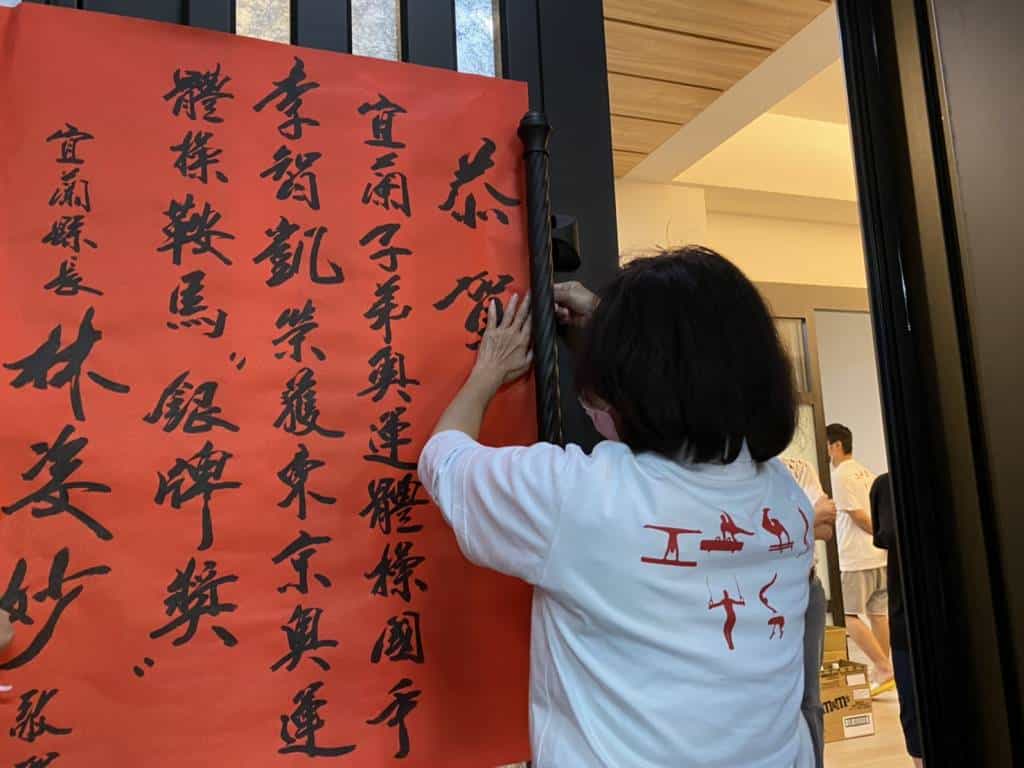 恭賀
宜蘭子弟奧運體操國手
李智凱榮獲東京奧運
體操鞍馬〝銀牌獎〞
宜蘭縣長林姿妙敬賀
M&M's